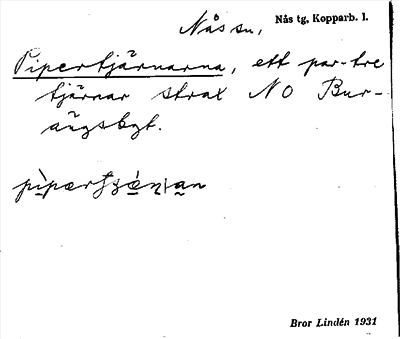 Nås sn, Nås tg, Kopparb. l.
Pipertjärnarna, ett par-tre
tjärnar strax NO Bur-
ängsbgt.
Bror Lindén 1931